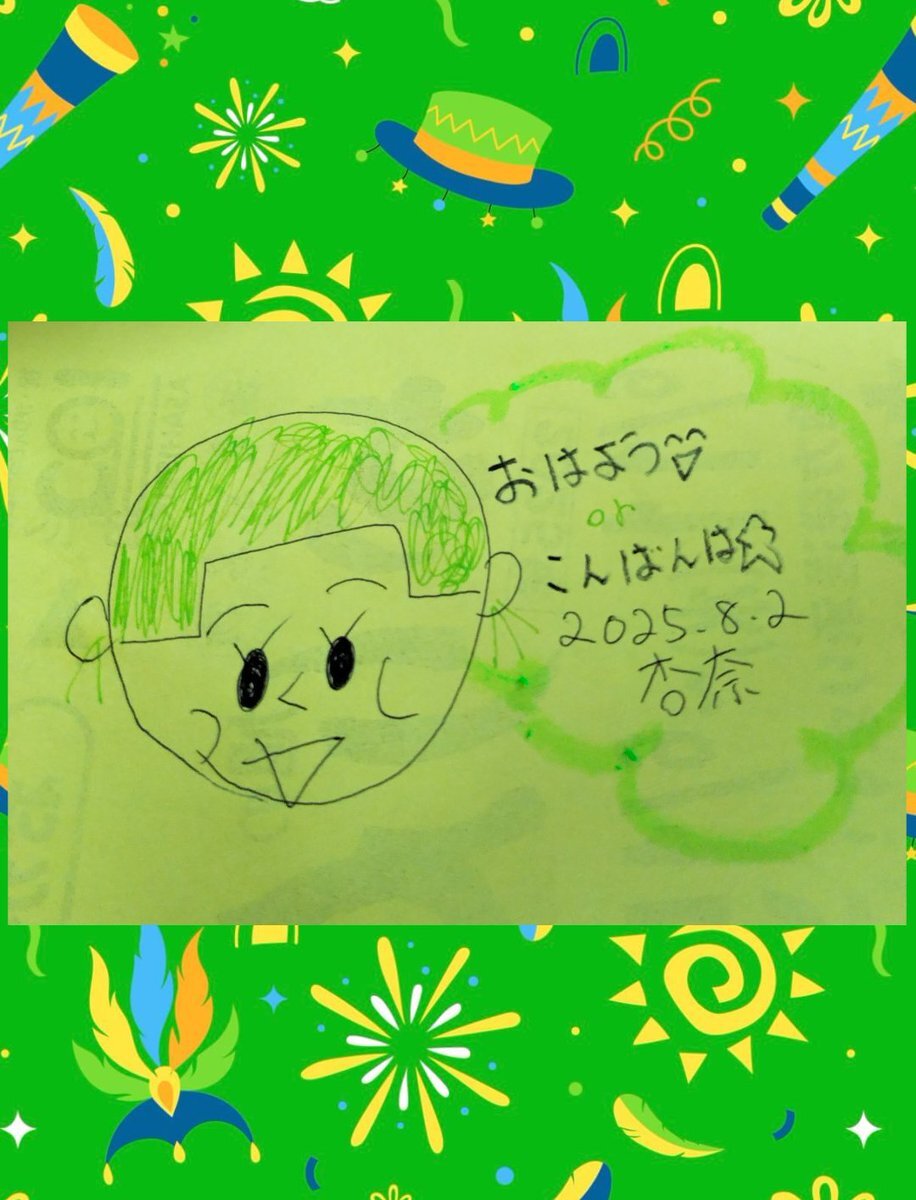 おはよう♡
or
こんばんは☆
2025.8.2
杏奈